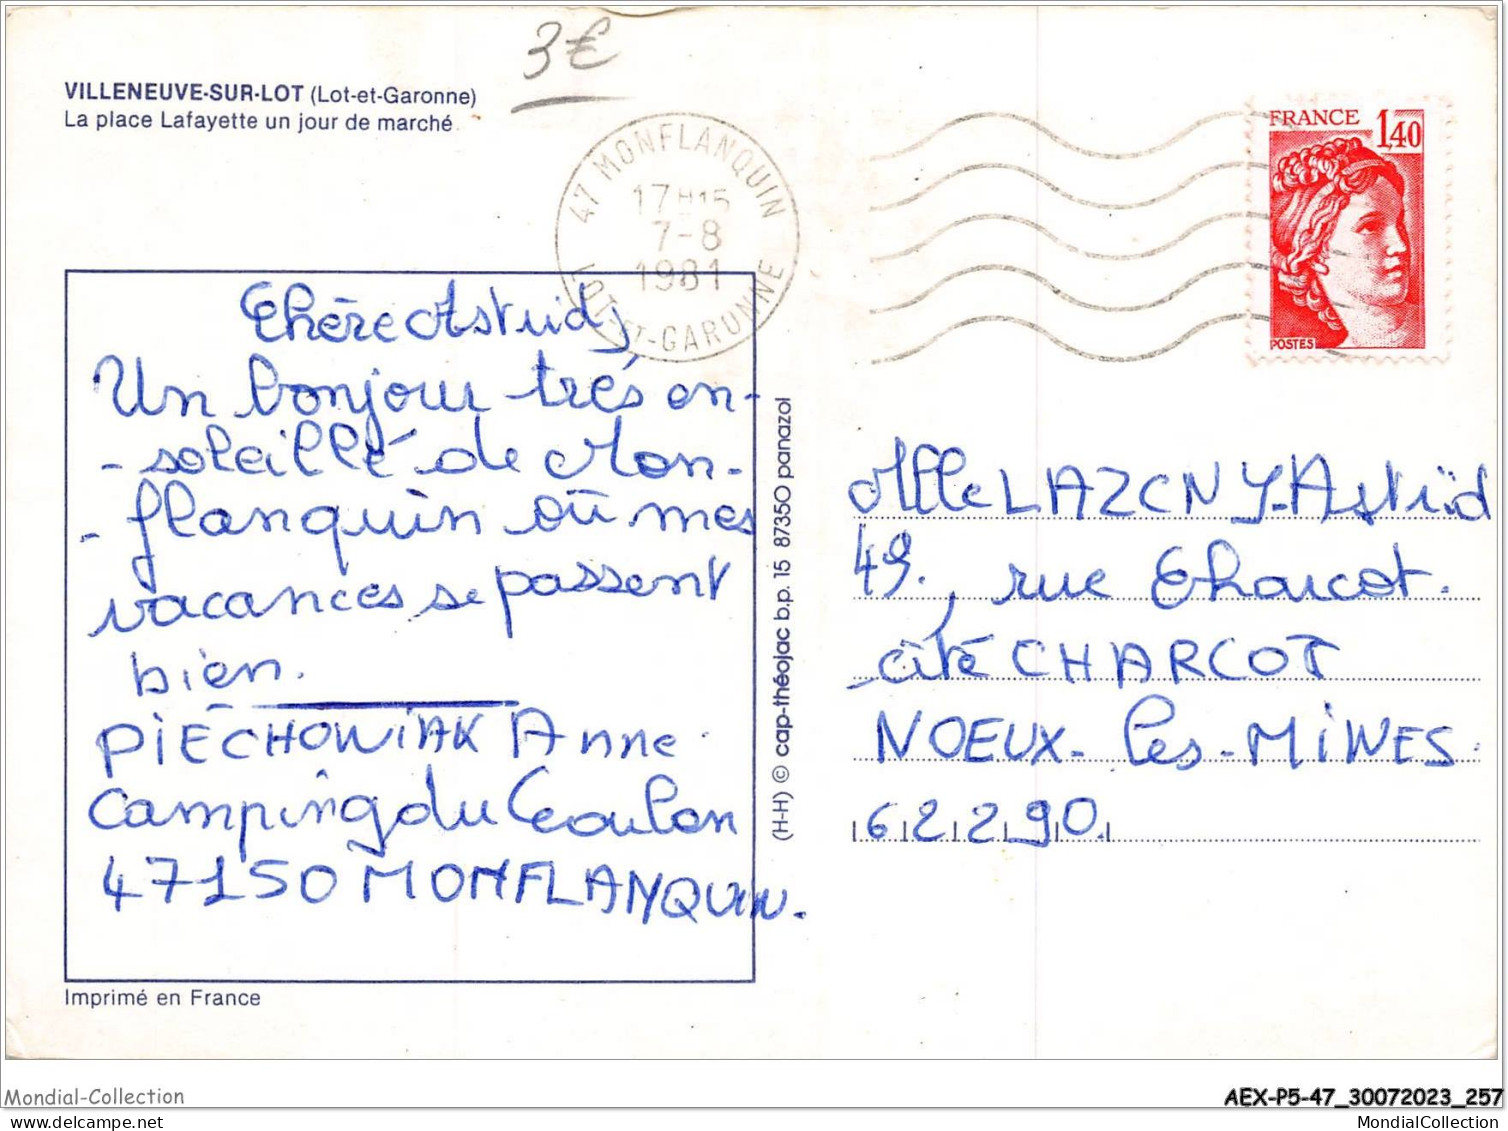 3€
VILLENEUVE-SUR-LOT (Lot-et-Garonne)
La place Lafayette un jour de marché
47 MONFLANQUIN
17H15
7-8
1981
LOT-ET-GARONNE
FRANCE 1,40
POSTES
Chère Astrid,
Un bonjour très en-
-soleillé de Mon-
-flanquin où mes
vacances se passent
bien.
PIECHOWIAK Anne
Camping du Coulon
47150 MONFLANQUIN.
Imprimé en France
(H-H) © cap-théojac b.p. 15 87350 panazol
Mlle LAZCNY Astrid
49, rue Charcot.
cité CHARCOT
NOEUX-les-MINES
62290.
Mondial-Collection
mondial-collection
AEX-P5-47_30072023_257
MondialCollection